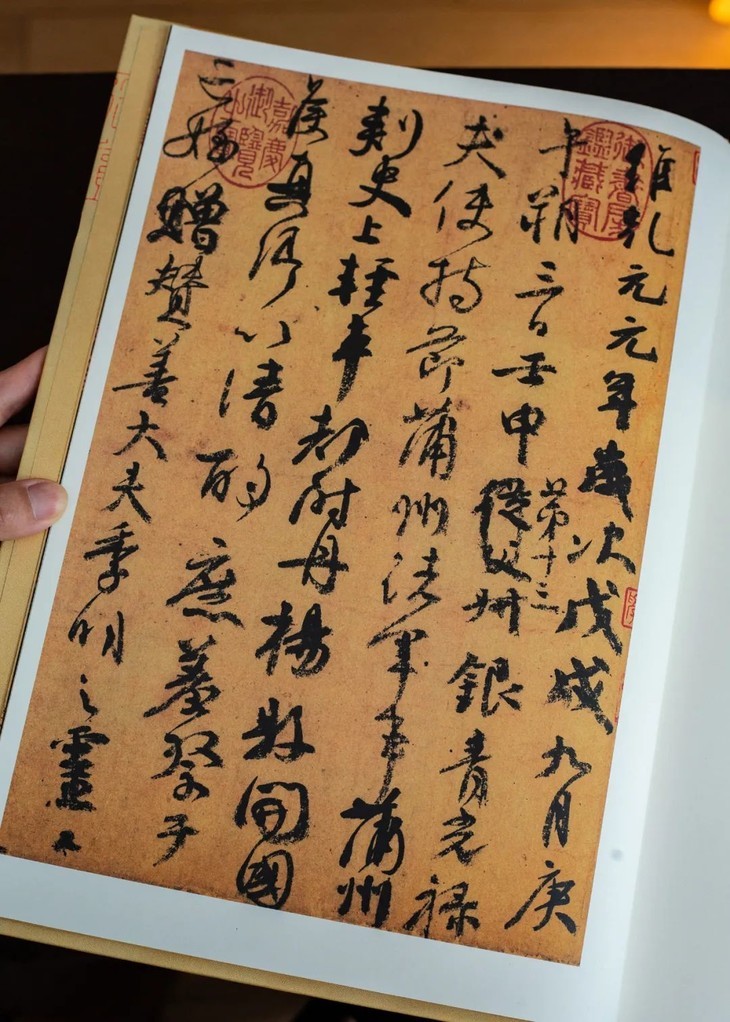 維乾元元年歲次戊戌九月庚
午朔三日壬申從父第十三叔銀青光祿
夫使持節蒲州諸軍事蒲州
刺史上輕車都尉丹楊縣開國
侯真卿以清酌庶羞祭于
亡姪贈贊善大夫季明之靈曰
御書房鑑藏寶
嘉慶御覽之寶